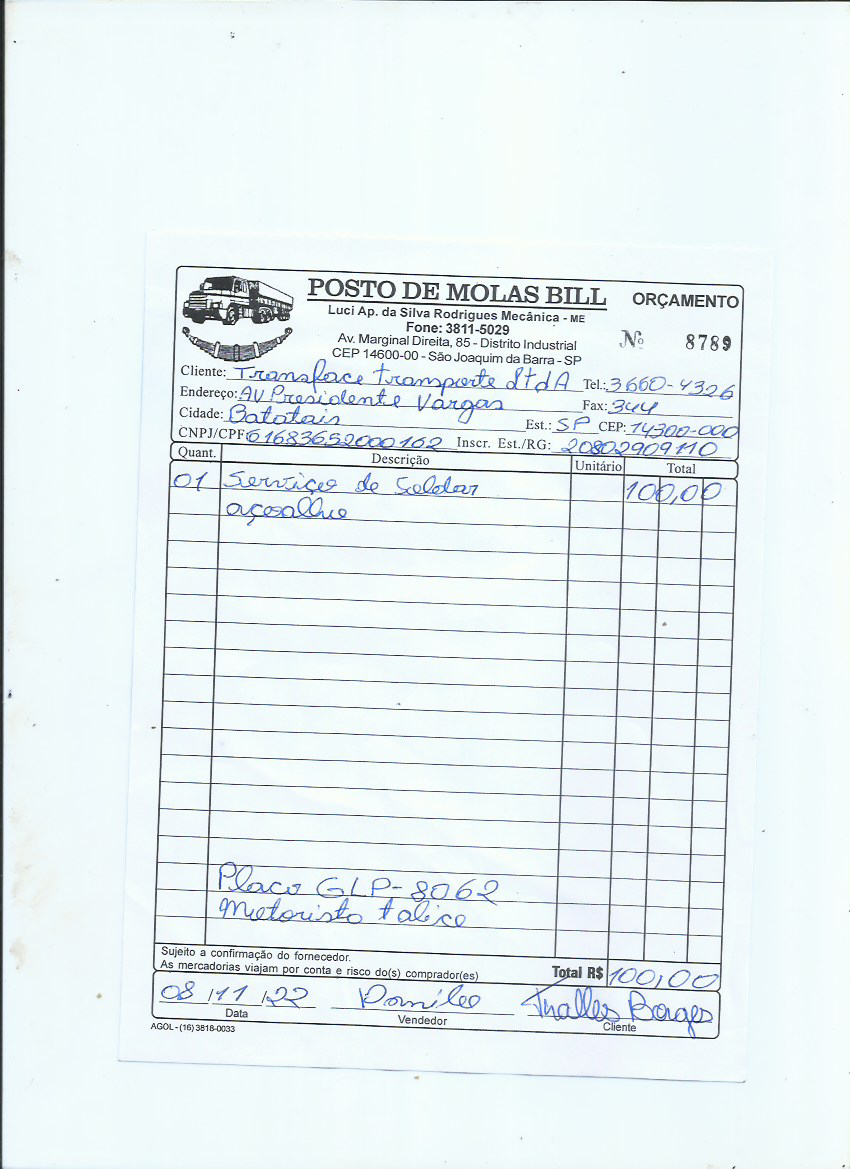 POSTO DE MOLAS BILL ORÇAMENTO
Luci Ap. da Silva Rodrigues Mecânica - ME
Fone: 3811-5029
Av. Marginal Direita, 85 - Distrito Industrial
CEP 14600-00 - São Joaquim da Barra - SP
Nº 8789
Cliente: Transface transporte LtdA Tel.: 3660-4326
Endereço: AV Presidente Vargas Fax: 344
Cidade: Batatais Est.: SP CEP: 14300-000
CNPJ/CPF 61683652000162 Inscr. Est./RG: 20802909110
Quant. Descrição Unitário Total
01 Serviço de Soldar 100,00
açoalho
Placa GLP-8062
Motorista
Sujeito a confirmação do fornecedor.
As mercadorias viajam por conta e risco do(s) comprador(es)
Total R$ 100,00
08 / 11 / 22 Danilo Thalles Borges
Data Vendedor Cliente
AGOL - (16) 3818-0033